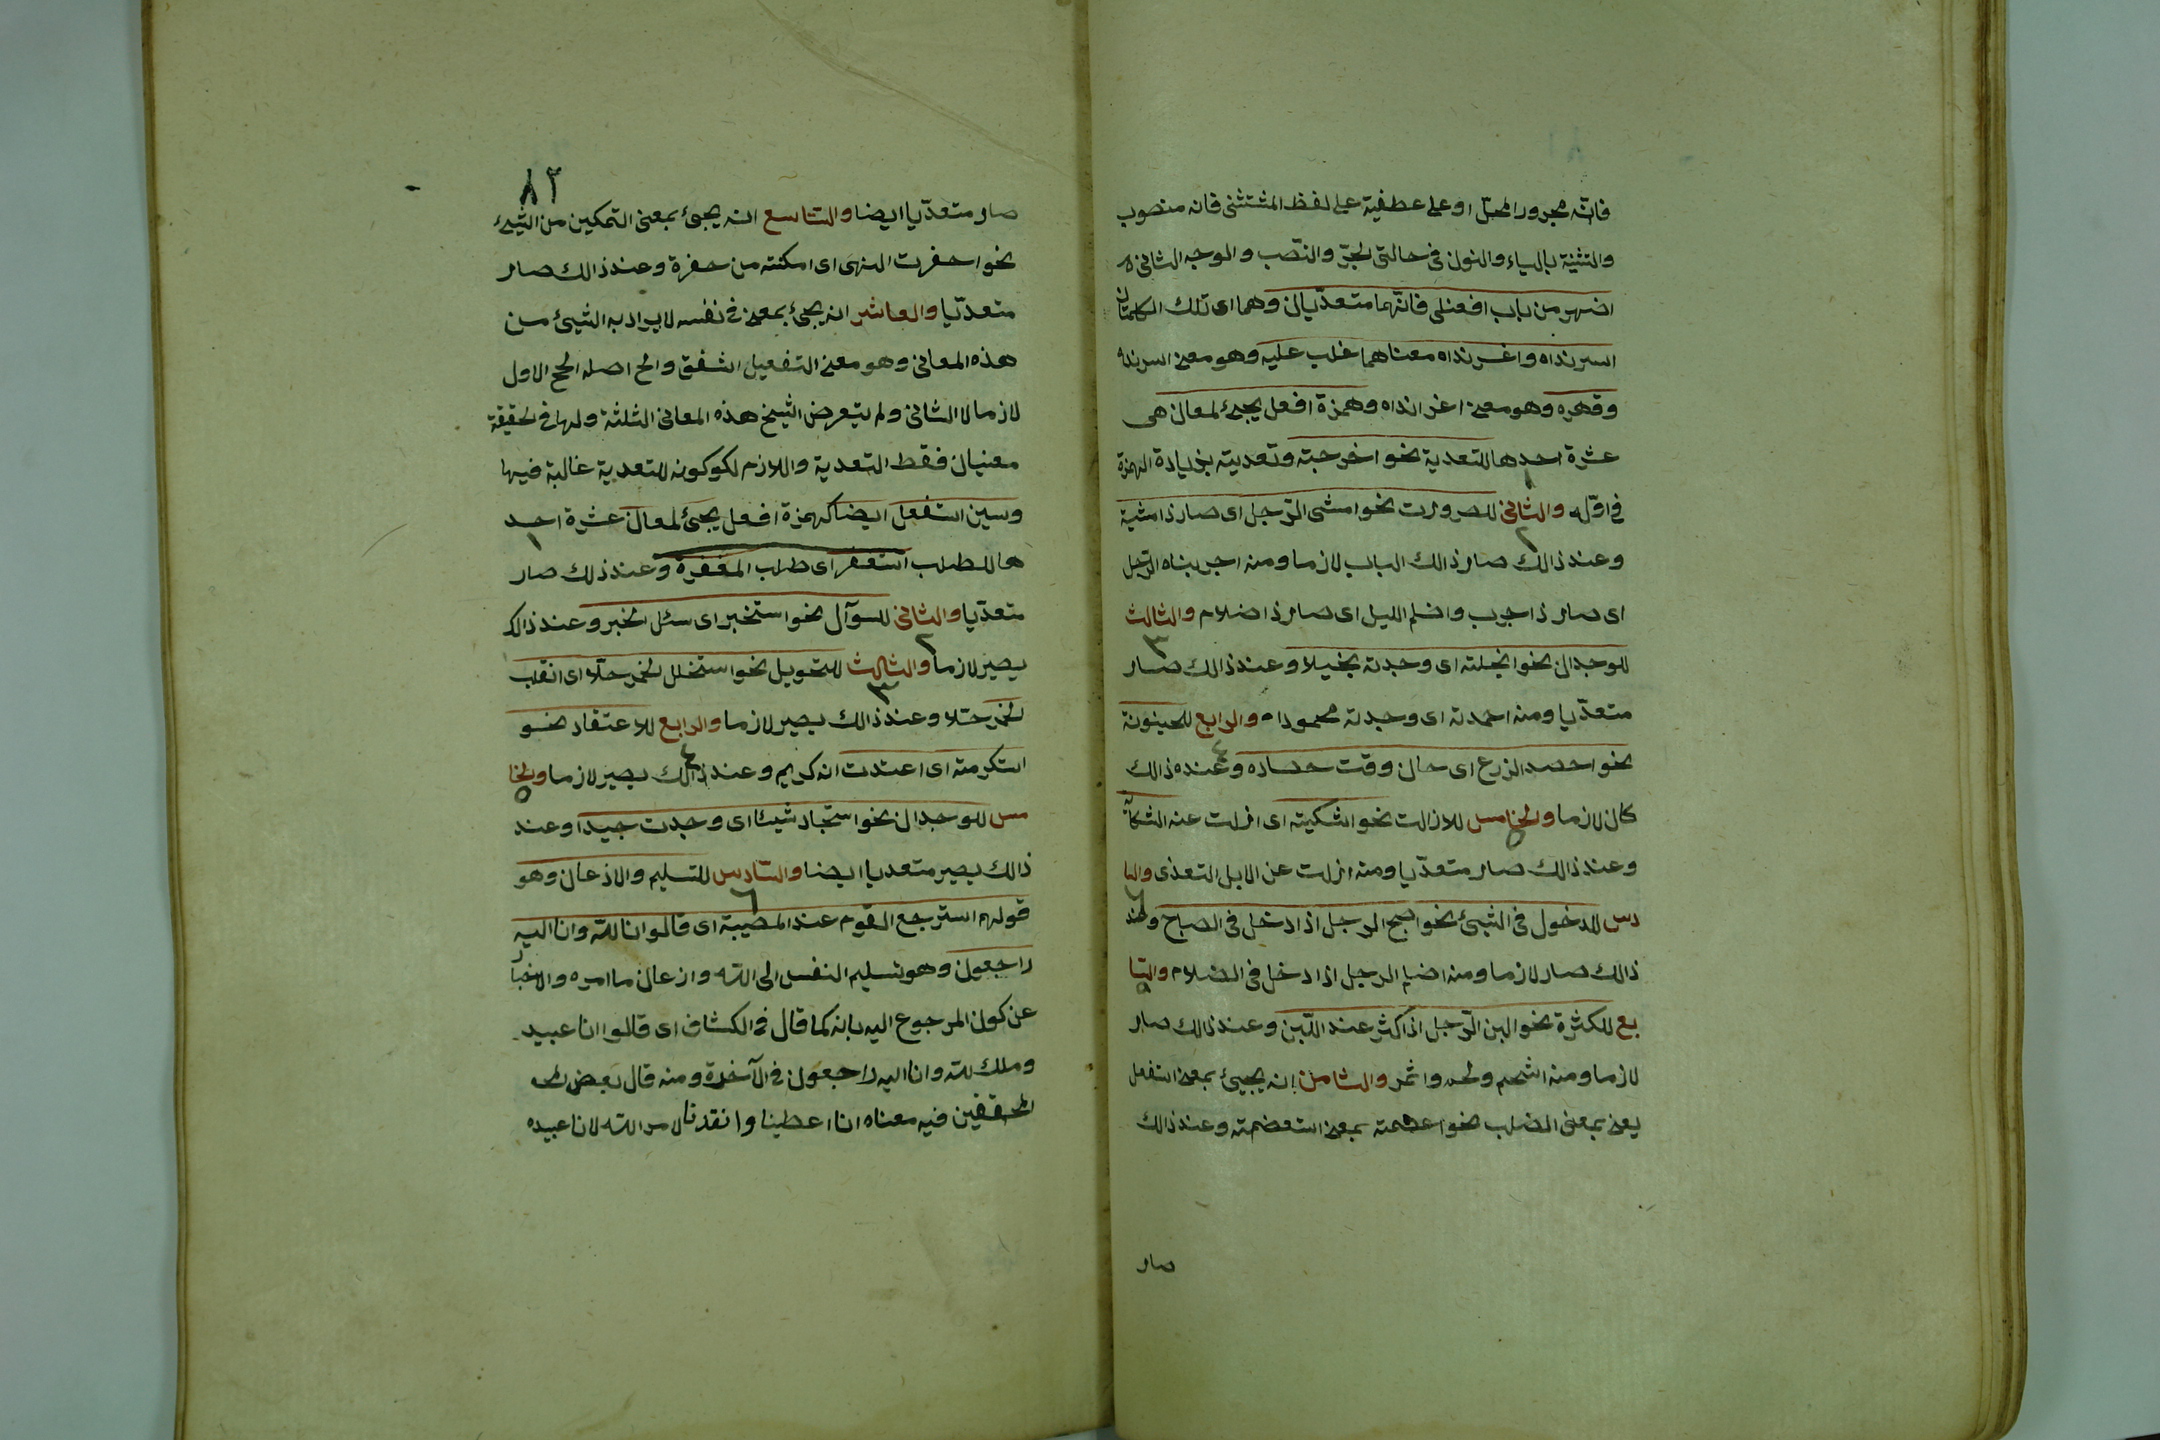 فانه مجرور المحل او على عطفية على لفظ المشتثنى فانه منصوب
والتثنية بالياء والنون فى حالتى الجرّ والنّصب والوجه الثانى
انهر من باب افعنلى فانّهما متعدّيالن وهما اى تلك الكلمتان
اسرنداه واغرنداه معناهما غلب عليه وهو معنى اسرنداه
وقهره وهو معنى اغرانداه وهمزة افعل يجىء لمعان هى
عشرة احدها للتعدية نحو اخرجته وتعديته بزيادة الهمزة
١
فى اوّله والثانى للصرورت نحو امشى الرّجل اى صار ذا مشية
٢
وعند ذالك صار ذالك الباب لازما ومنه اجربناه الرّجل
اى صار ذا جرب واضلم الليل اى صار ذا ضلام والثالث
٣
للوجدان نحو ابخلته اى وجدته بخيلا وعند ذالك صار
متعدّيا ومنه احمدته اى وجدته محمودا والرابع للحينونة
٤
نحو احصد الزرع اى حان وقت حصاده وعنده ذالك
كان لازما والخامس للازالت نحو اشكيته اى ازلت عنه الشكآة
٥
وعند ذالك صار متعدّيا ومنه ازلت عن الابل التعذى والسا
٦
دس للدخول فى الشيئ نحو اصبح الرجل اذا دخل فى الصباح وعند
ذالك صار لازما ومنه اضلم الرجل اذا دخل فى الضلام والسّا
بع للكثرة نحو البن الرّجل اذا كثر عند اللّبن وعند ذالك صار
لازما ومنه اشحم ولحم واثمر والثامن انه يجيئ بمعنى استفعل
يعنى بمعنى الضلب نحو اعظمته بمعنى استعضمته وعند ذالك
صار
٨٢
صار متعدّيا ايضا والتاسع انه يجئ بمعنى التمكين من الشيئ
نحو احفرت النهى اى امكنته من حفرة وعند ذالك صار
متعدّيا والعاشر انه يجئ بمعنى فى نفسه لا يراد به الشيئ من
هذه المعانى وهو معنى التفعيل اشفق والح اصله الحح الاول
لازما لا الثانى ولم يتعرض الشيخ هذه المعانى الثلثة ولها فى الحقيقة
معنيان فقط التعدية واللازم لكو كونه للتعدية غالبة فيها
وسين استفعل ايضا كهمزة افعل يجئ لمعان عشرة احد
١
ها للطلب استغفر اى طلب المغفرة وعند ذلك صار
متعدّيا والثانى للسوآل نحو استخبر اى سئل الخبر وعند ذالك
٢
يصير لازما والثالث للتحويل نحو استخلل الخمر خلّا اى انقلب
٣
الخمر خلا وعند ذالك يصير لازما والرابع للاعتقاد نحو
٤
استكرمته اى اعتدت انه كريم وعند ذالك يصير لازما والخا
٥
مس للوجدان نحو استجاد شيئا اى وجدت جيدا وعند
ذالك يصير متعديا ايضا والسّادس للتسليم والاذعان وهو
٦
قولهم استرجع القوم عند المصيبة اى قالوا انا للّه وانا اليه
راجعون وهو تسليم النفس الى اللّه واذعان ما امره والاخبار
عن كون المرجوع اليه بانه كما قال فى الكشاف اى قالوا انا عبيد
وملك للّه وانا اليه راجعون فى الآخرة ومنه قال بعض
المحققين فيه معناه انا اعطينا وانقدنا لامر اللّه لانا عبيده